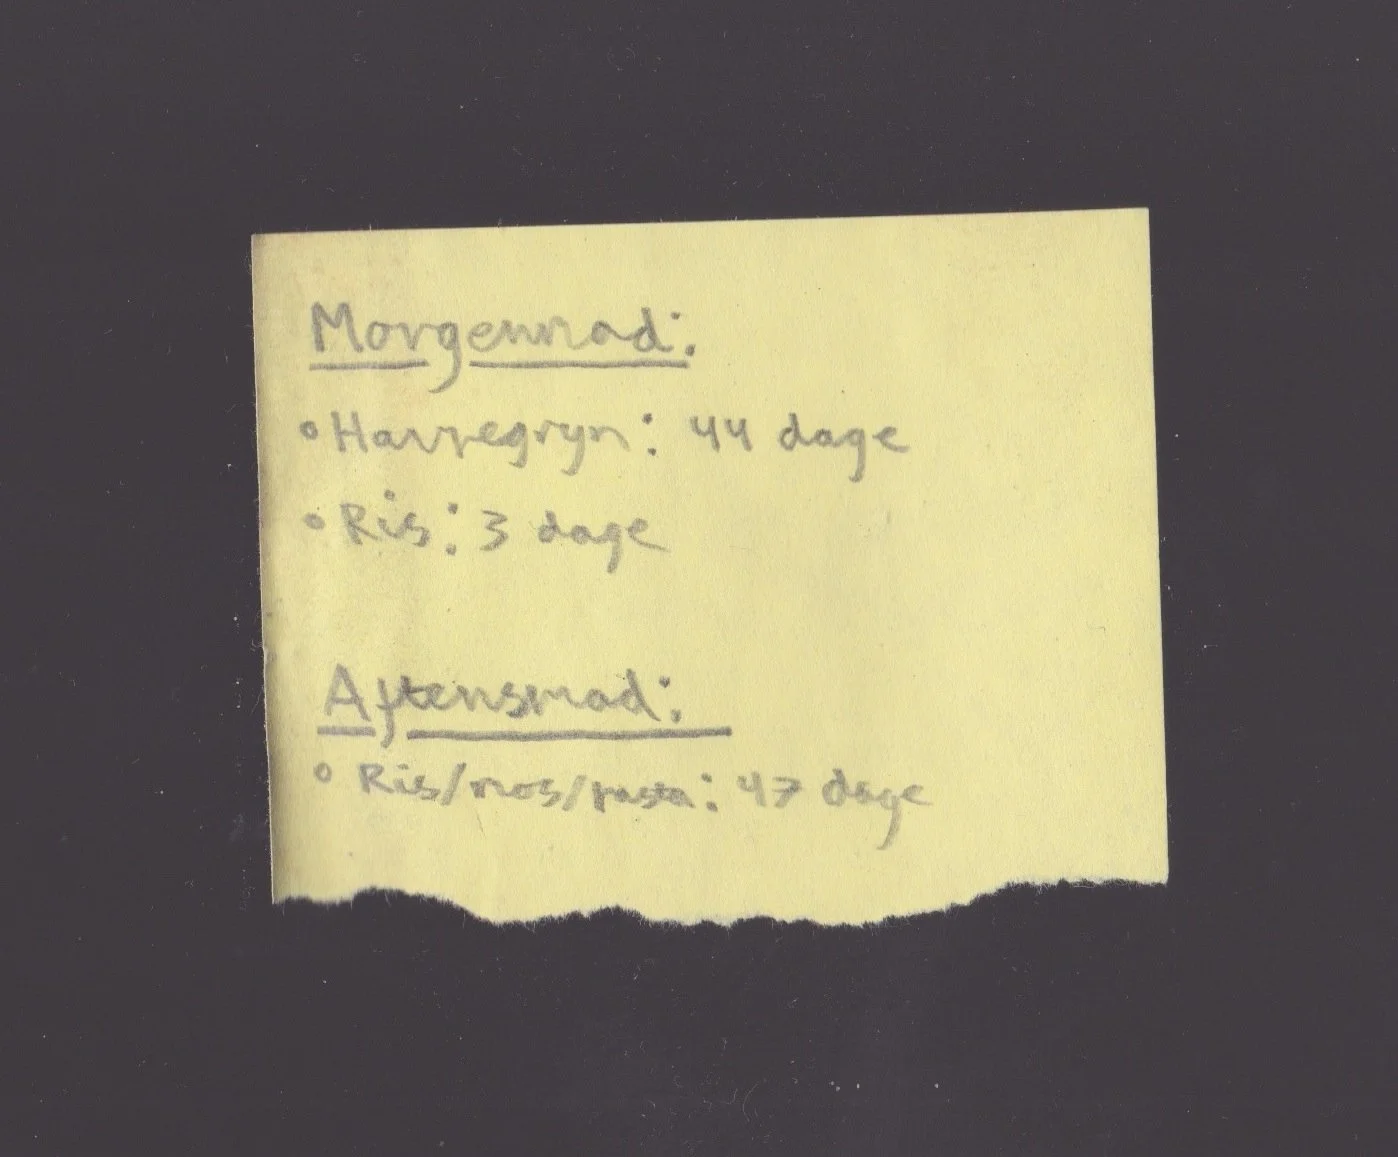 Morgenmad:
• Havregryn: 44 dage
• Ris: 3 dage
Aftensmad:
• Ris/mos/pasta: 47 dage